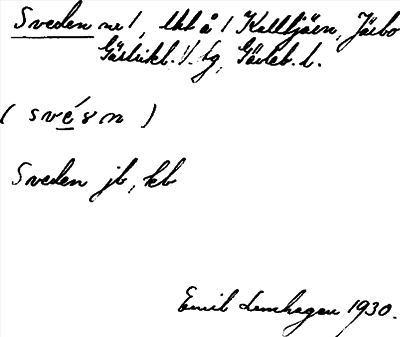 Sveden nr 1, tkt å 1 Kalltjären, Järbo
Gästrikl. v. tg, Gävleb. l.
( své8n )
Sveden jb, kb
Emil Lemhagen 1930.